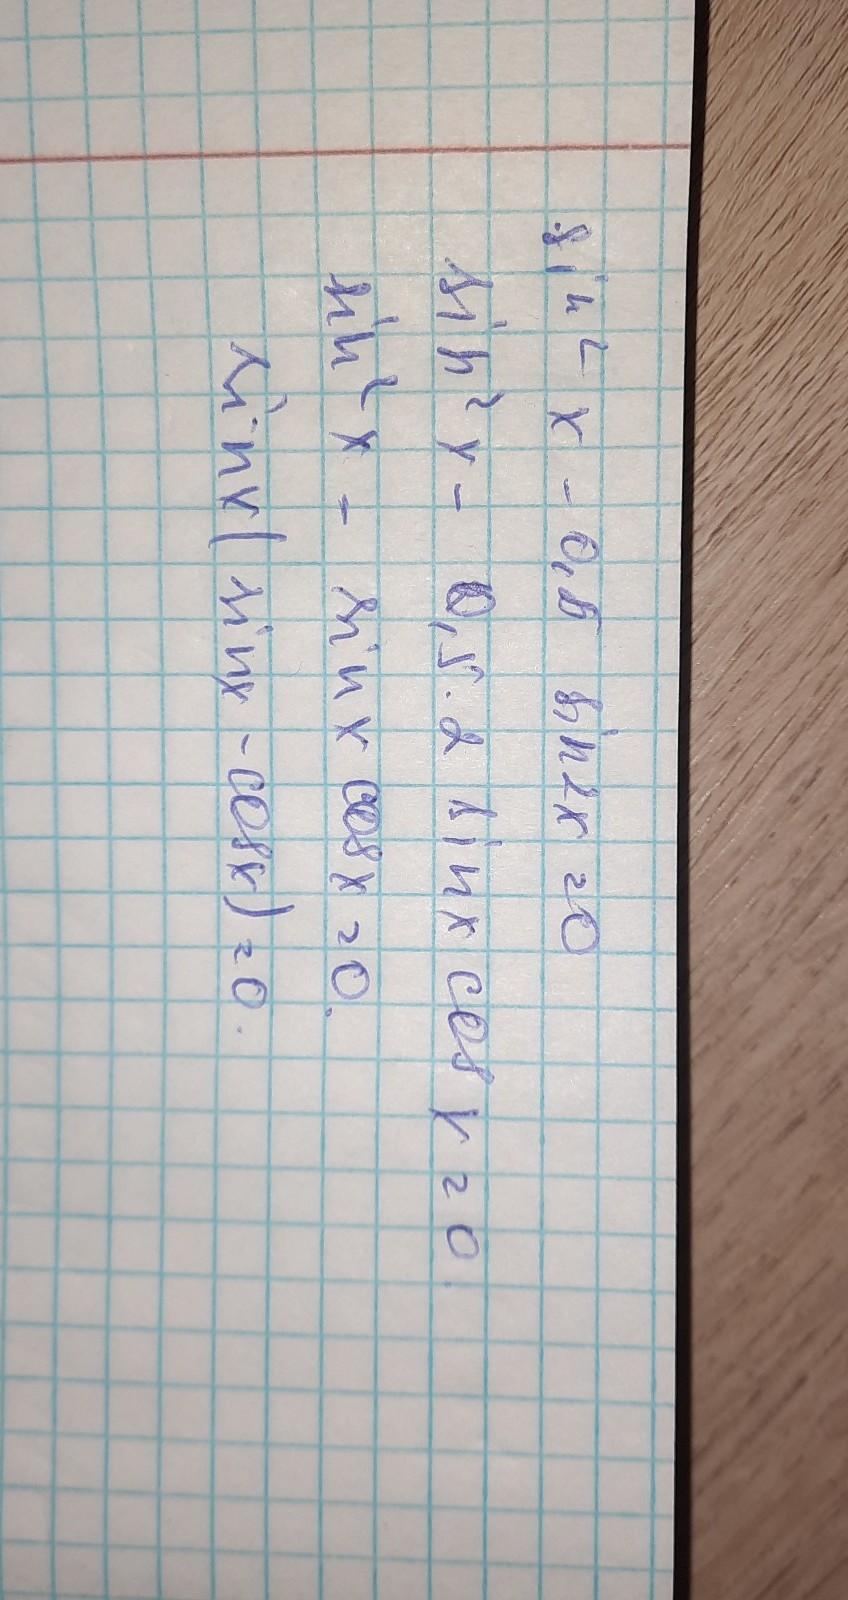 sin² x - 0,5 sin2x = 0
sin² x - 0,5·2 sinx cosx = 0.
sin² x - sinx cosx = 0.
sinx(sinx - cosx) = 0.